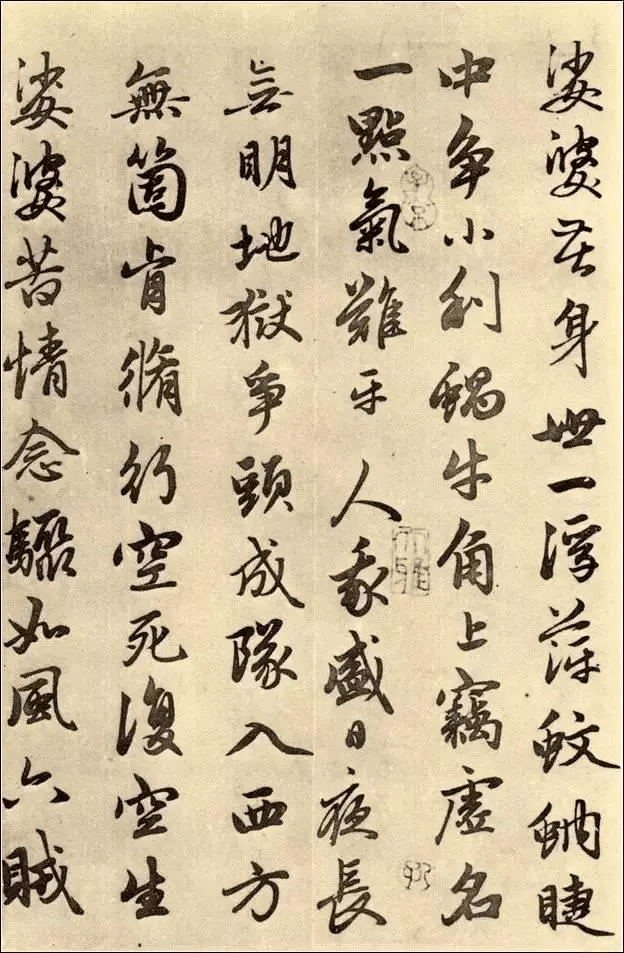 娑婆苦身世一浮萍蚊蚋睫
中争小利蝸牛角上竊虛名
一點氣難平 人我盛日夜長
無明地獄爭頭成隊入西方
無箇肯脩行空死復空生
娑婆苦情念驟如風六賊